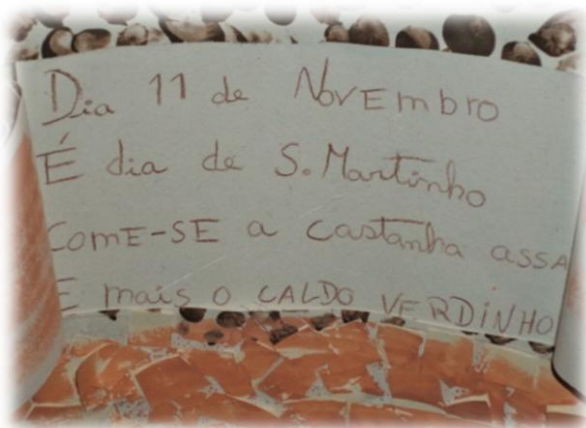 Dia 11 de NovEmbro
É dia de S. Martinho
ComE-SE a castanha assA
E mais o CALDO VERDiNHO